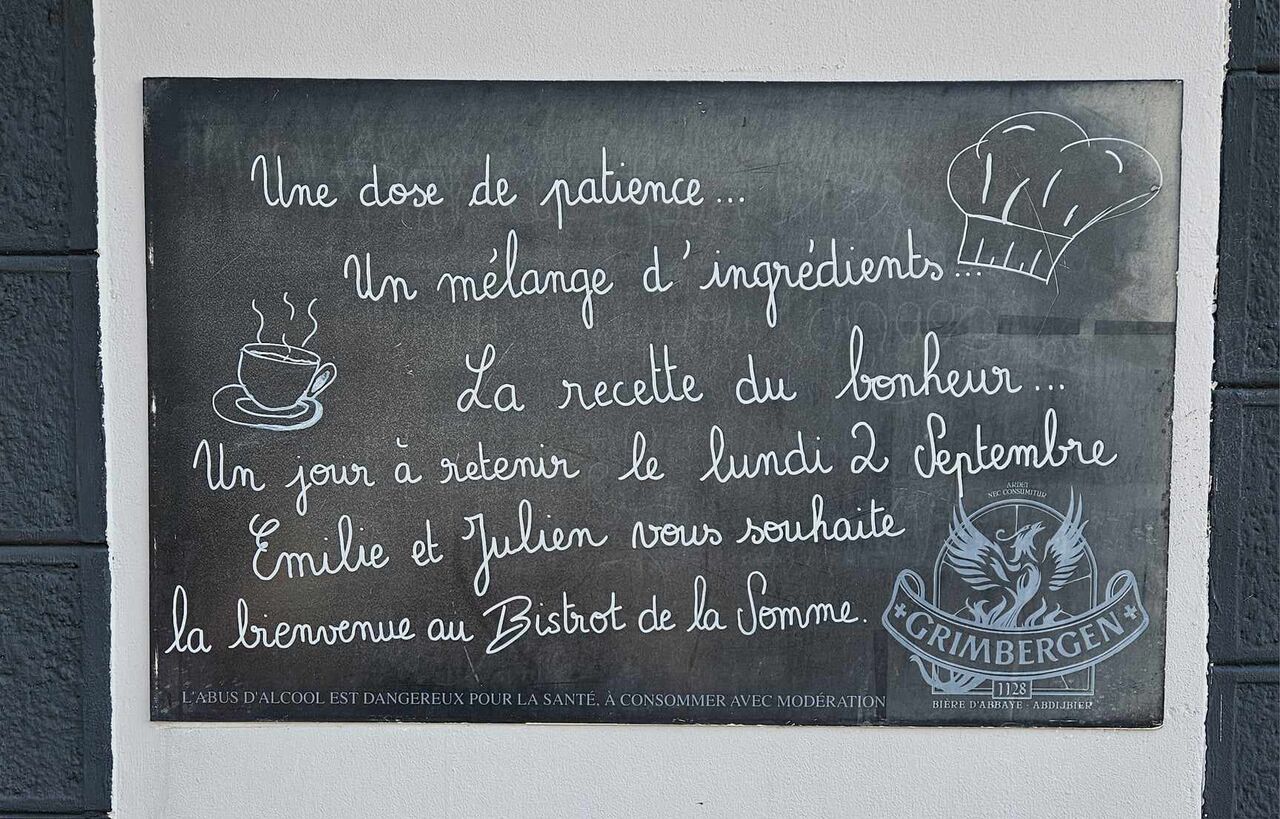 Une dose de patience...
Un mélange d'ingrédients...
La recette du bonheur...
Un jour à retenir le lundi 2 Septembre
Emilie et Julien vous souhaite
la bienvenue au Bistrot de la Somme.
ARDET
NEC CONSUMITUR
GRIMBERGEN
1128
BIÈRE D'ABBAYE - ABDIJBIER
L'ABUS D'ALCOOL EST DANGEREUX POUR LA SANTÉ, À CONSOMMER AVEC MODÉRATION